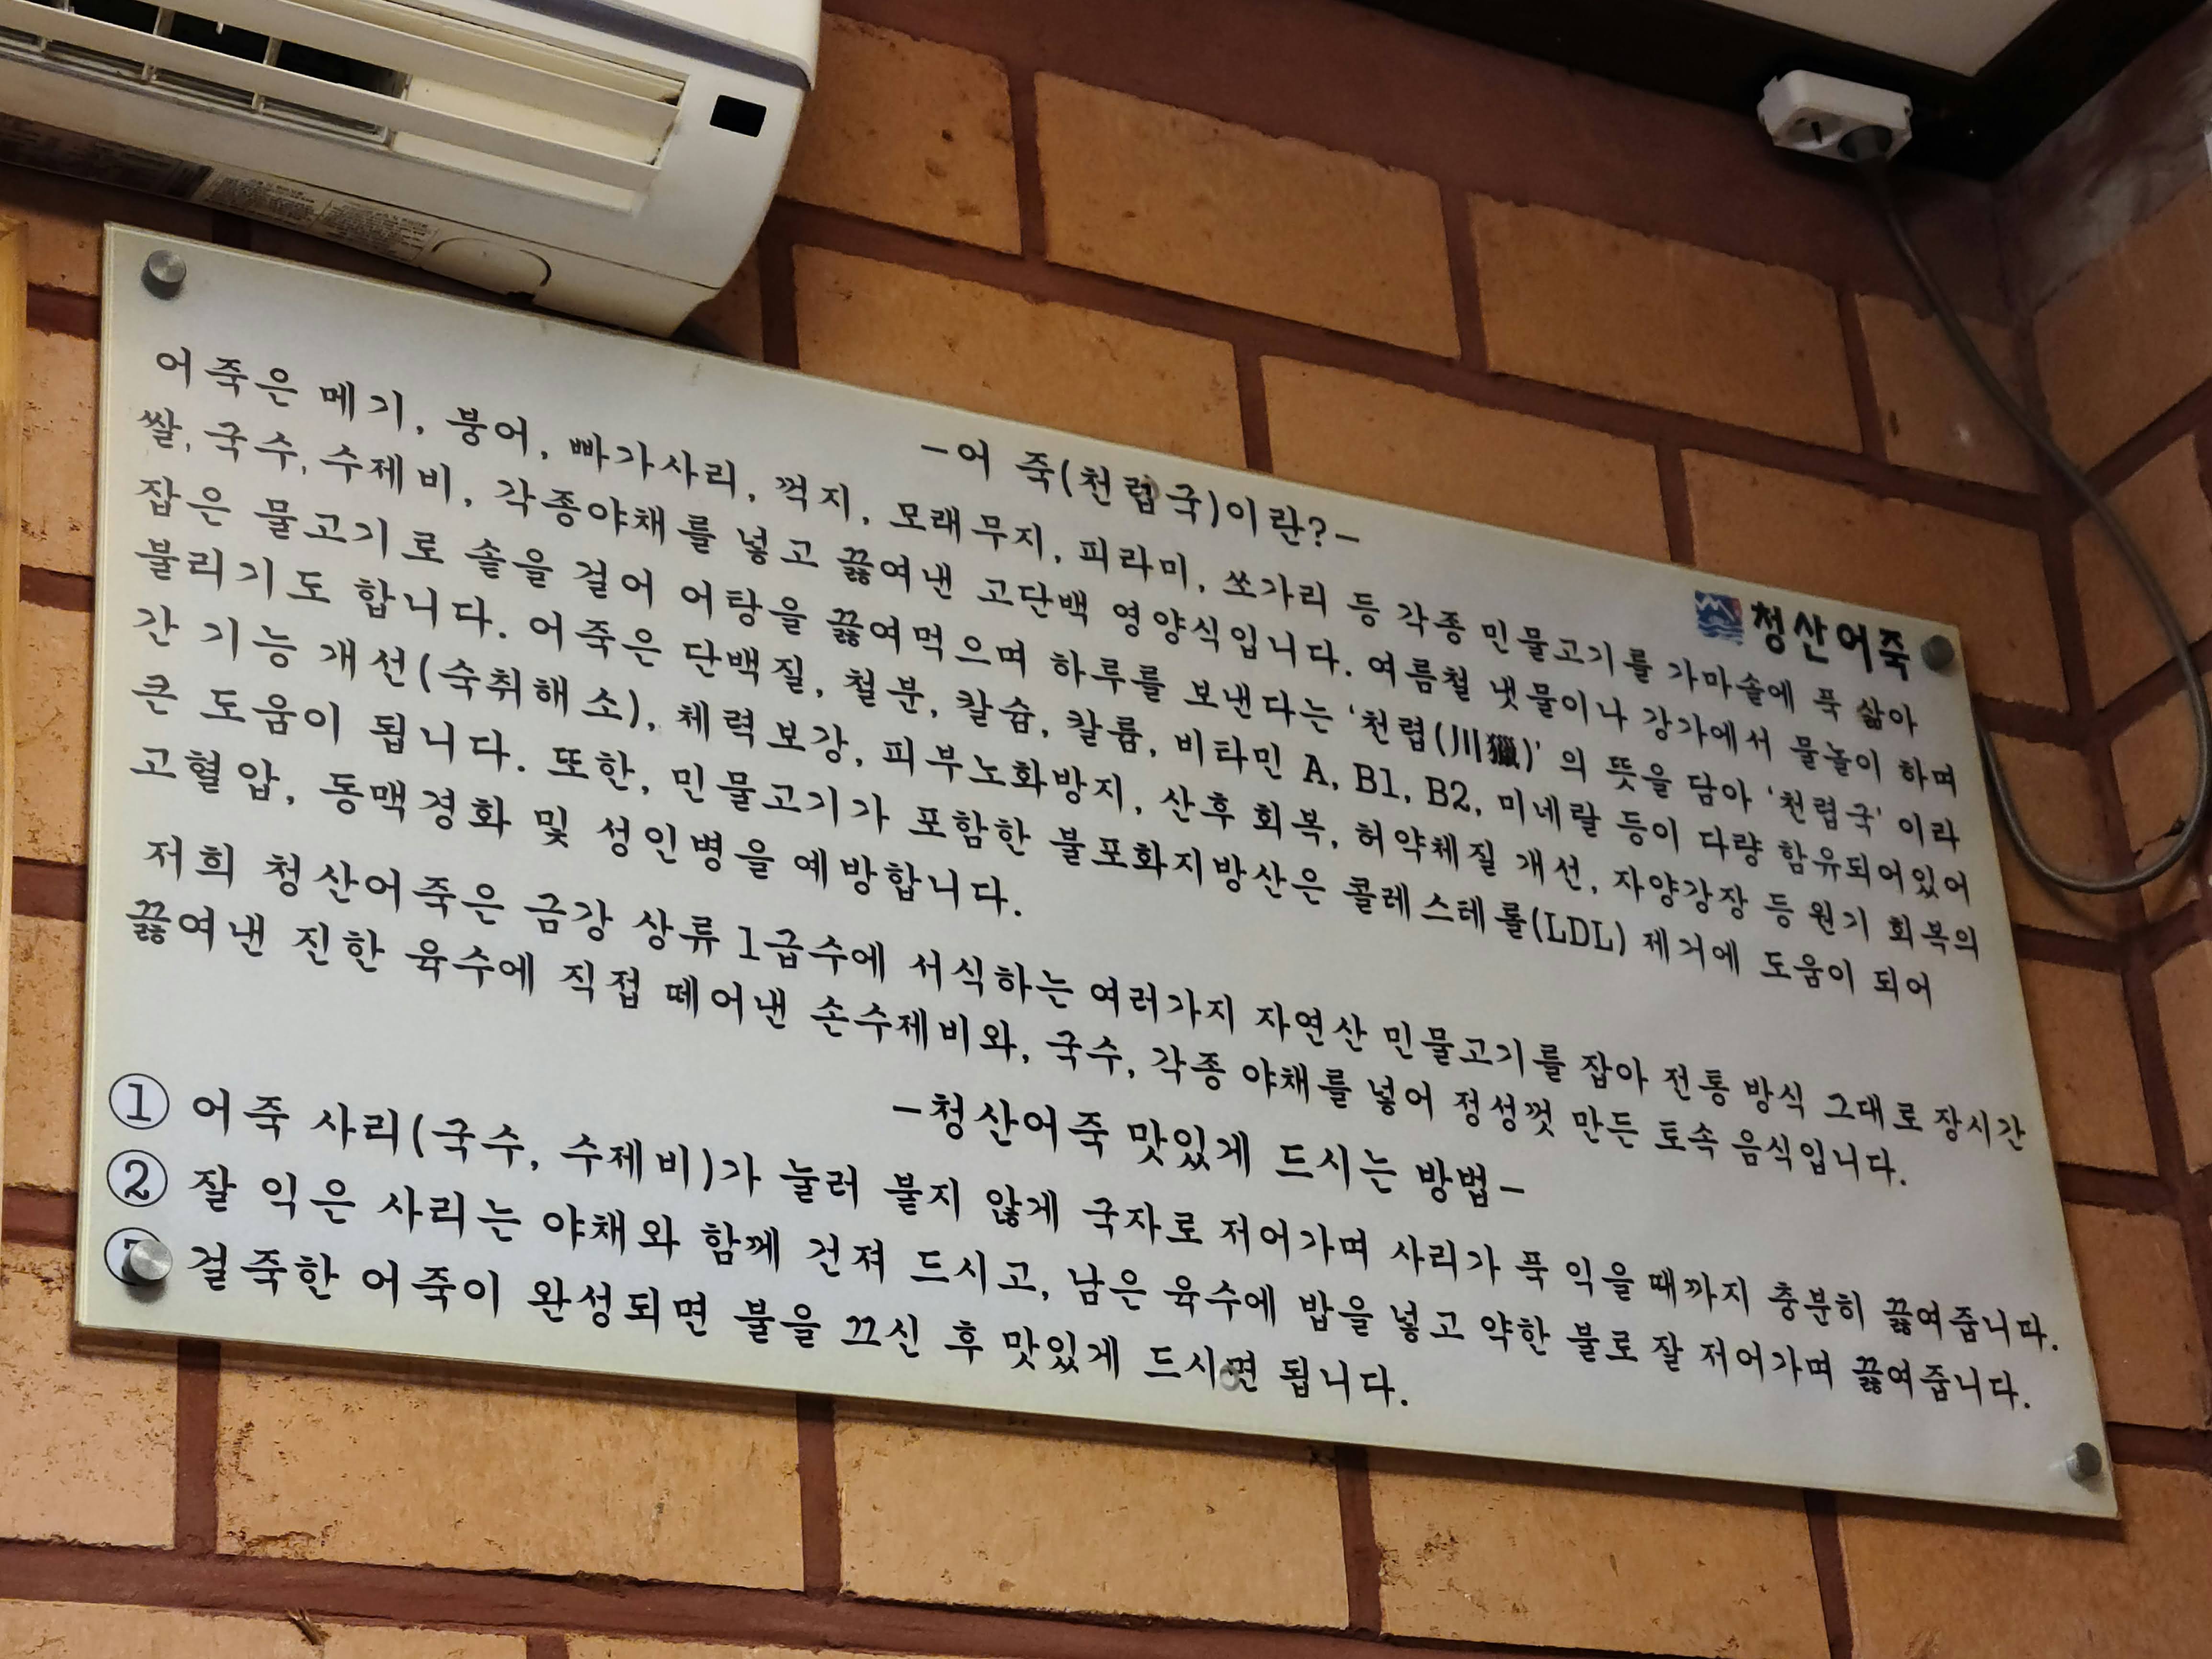 -어 죽(천렵국)이란?-
청산어죽
어죽은 메기, 붕어, 빠가사리, 꺽지, 모래무지, 피라미, 쏘가리 등 각종 민물고기를 가마솥에 푹 삶아
쌀, 국수, 수제비, 각종야채를 넣고 끓여낸 고단백 영양식입니다. 여름철 냇물이나 강가에서 물놀이 하며
잡은 물고기로 솥을 걸어 어탕을 끓여먹으며 하루를 보낸다는 '천렵(川獵)' 의 뜻을 담아 '천렵국' 이라
불리기도 합니다. 어죽은 단백질, 철분, 칼슘, 칼륨, 비타민 A, B1, B2, 미네랄 등이 다량 함유되어있어
간 기능 개선(숙취해소), 체력보강, 피부노화방지, 산후 회복, 허약체질 개선, 자양강장 등 원기 회복의
큰 도움이 됩니다. 또한, 민물고기가 포함한 불포화지방산은 콜레스테롤(LDL) 제거에 도움이 되어
고혈압, 동맥경화 및 성인병을 예방합니다.
저희 청산어죽은 금강 상류 1급수에 서식하는 여러가지 자연산 민물고기를 잡아 전통 방식 그대로 장시간
끓여낸 진한 육수에 직접 떼어낸 손수제비와, 국수, 각종 야채를 넣어 정성껏 만든 토속 음식입니다.
-청산어죽 맛있게 드시는 방법-
① 어죽 사리(국수, 수제비)가 눌러 붙지 않게 국자로 저어가며 사리가 푹 익을 때까지 충분히 끓여줍니다.
② 잘 익은 사리는 야채와 함께 건져 드시고, 남은 육수에 밥을 넣고 약한 불로 잘 저어가며 끓여줍니다.
걸죽한 어죽이 완성되면 불을 끄신 후 맛있게 드시면 됩니다.